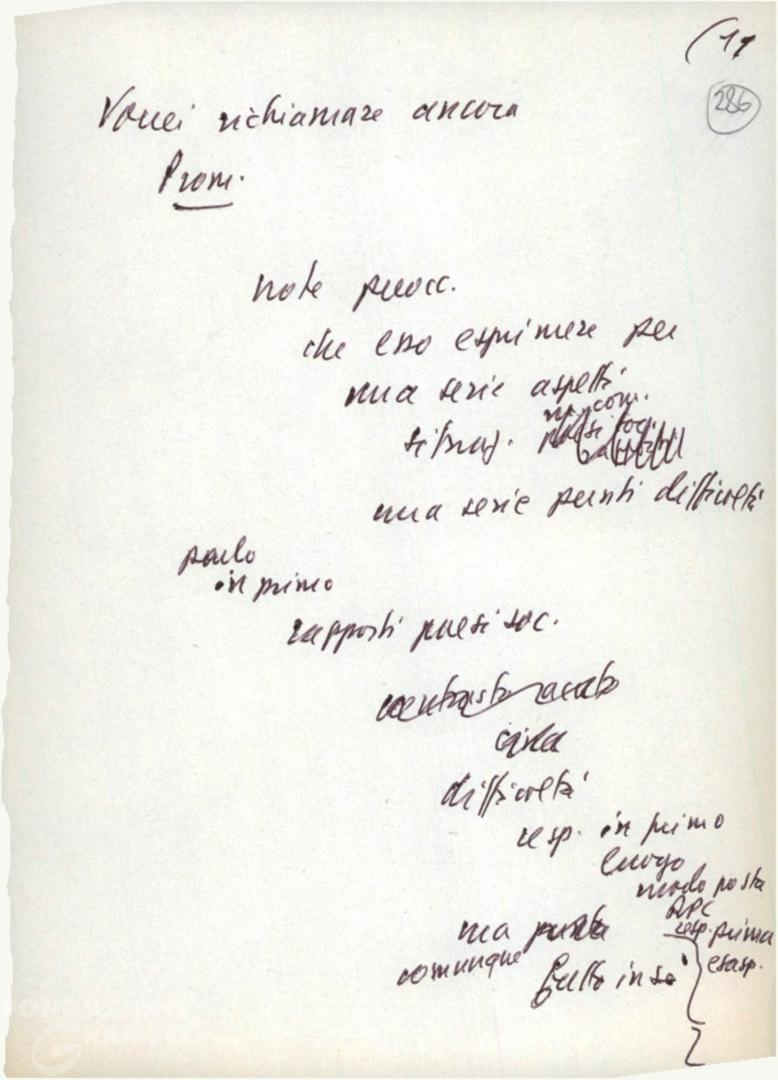 (11
286
Vorrei richiamare ancora
Prom.
note preocc.
che esso esprimere per
una serie aspetti
situaz. mov. com.
una serie punti difficoltà
parlo
in primo
rapporti paesi soc.
contrasto acuto
cina
difficoltà
resp. in primo
luogo
modo posta
APC
ma
resp. prima
comunque
fatto in sé
esasp.